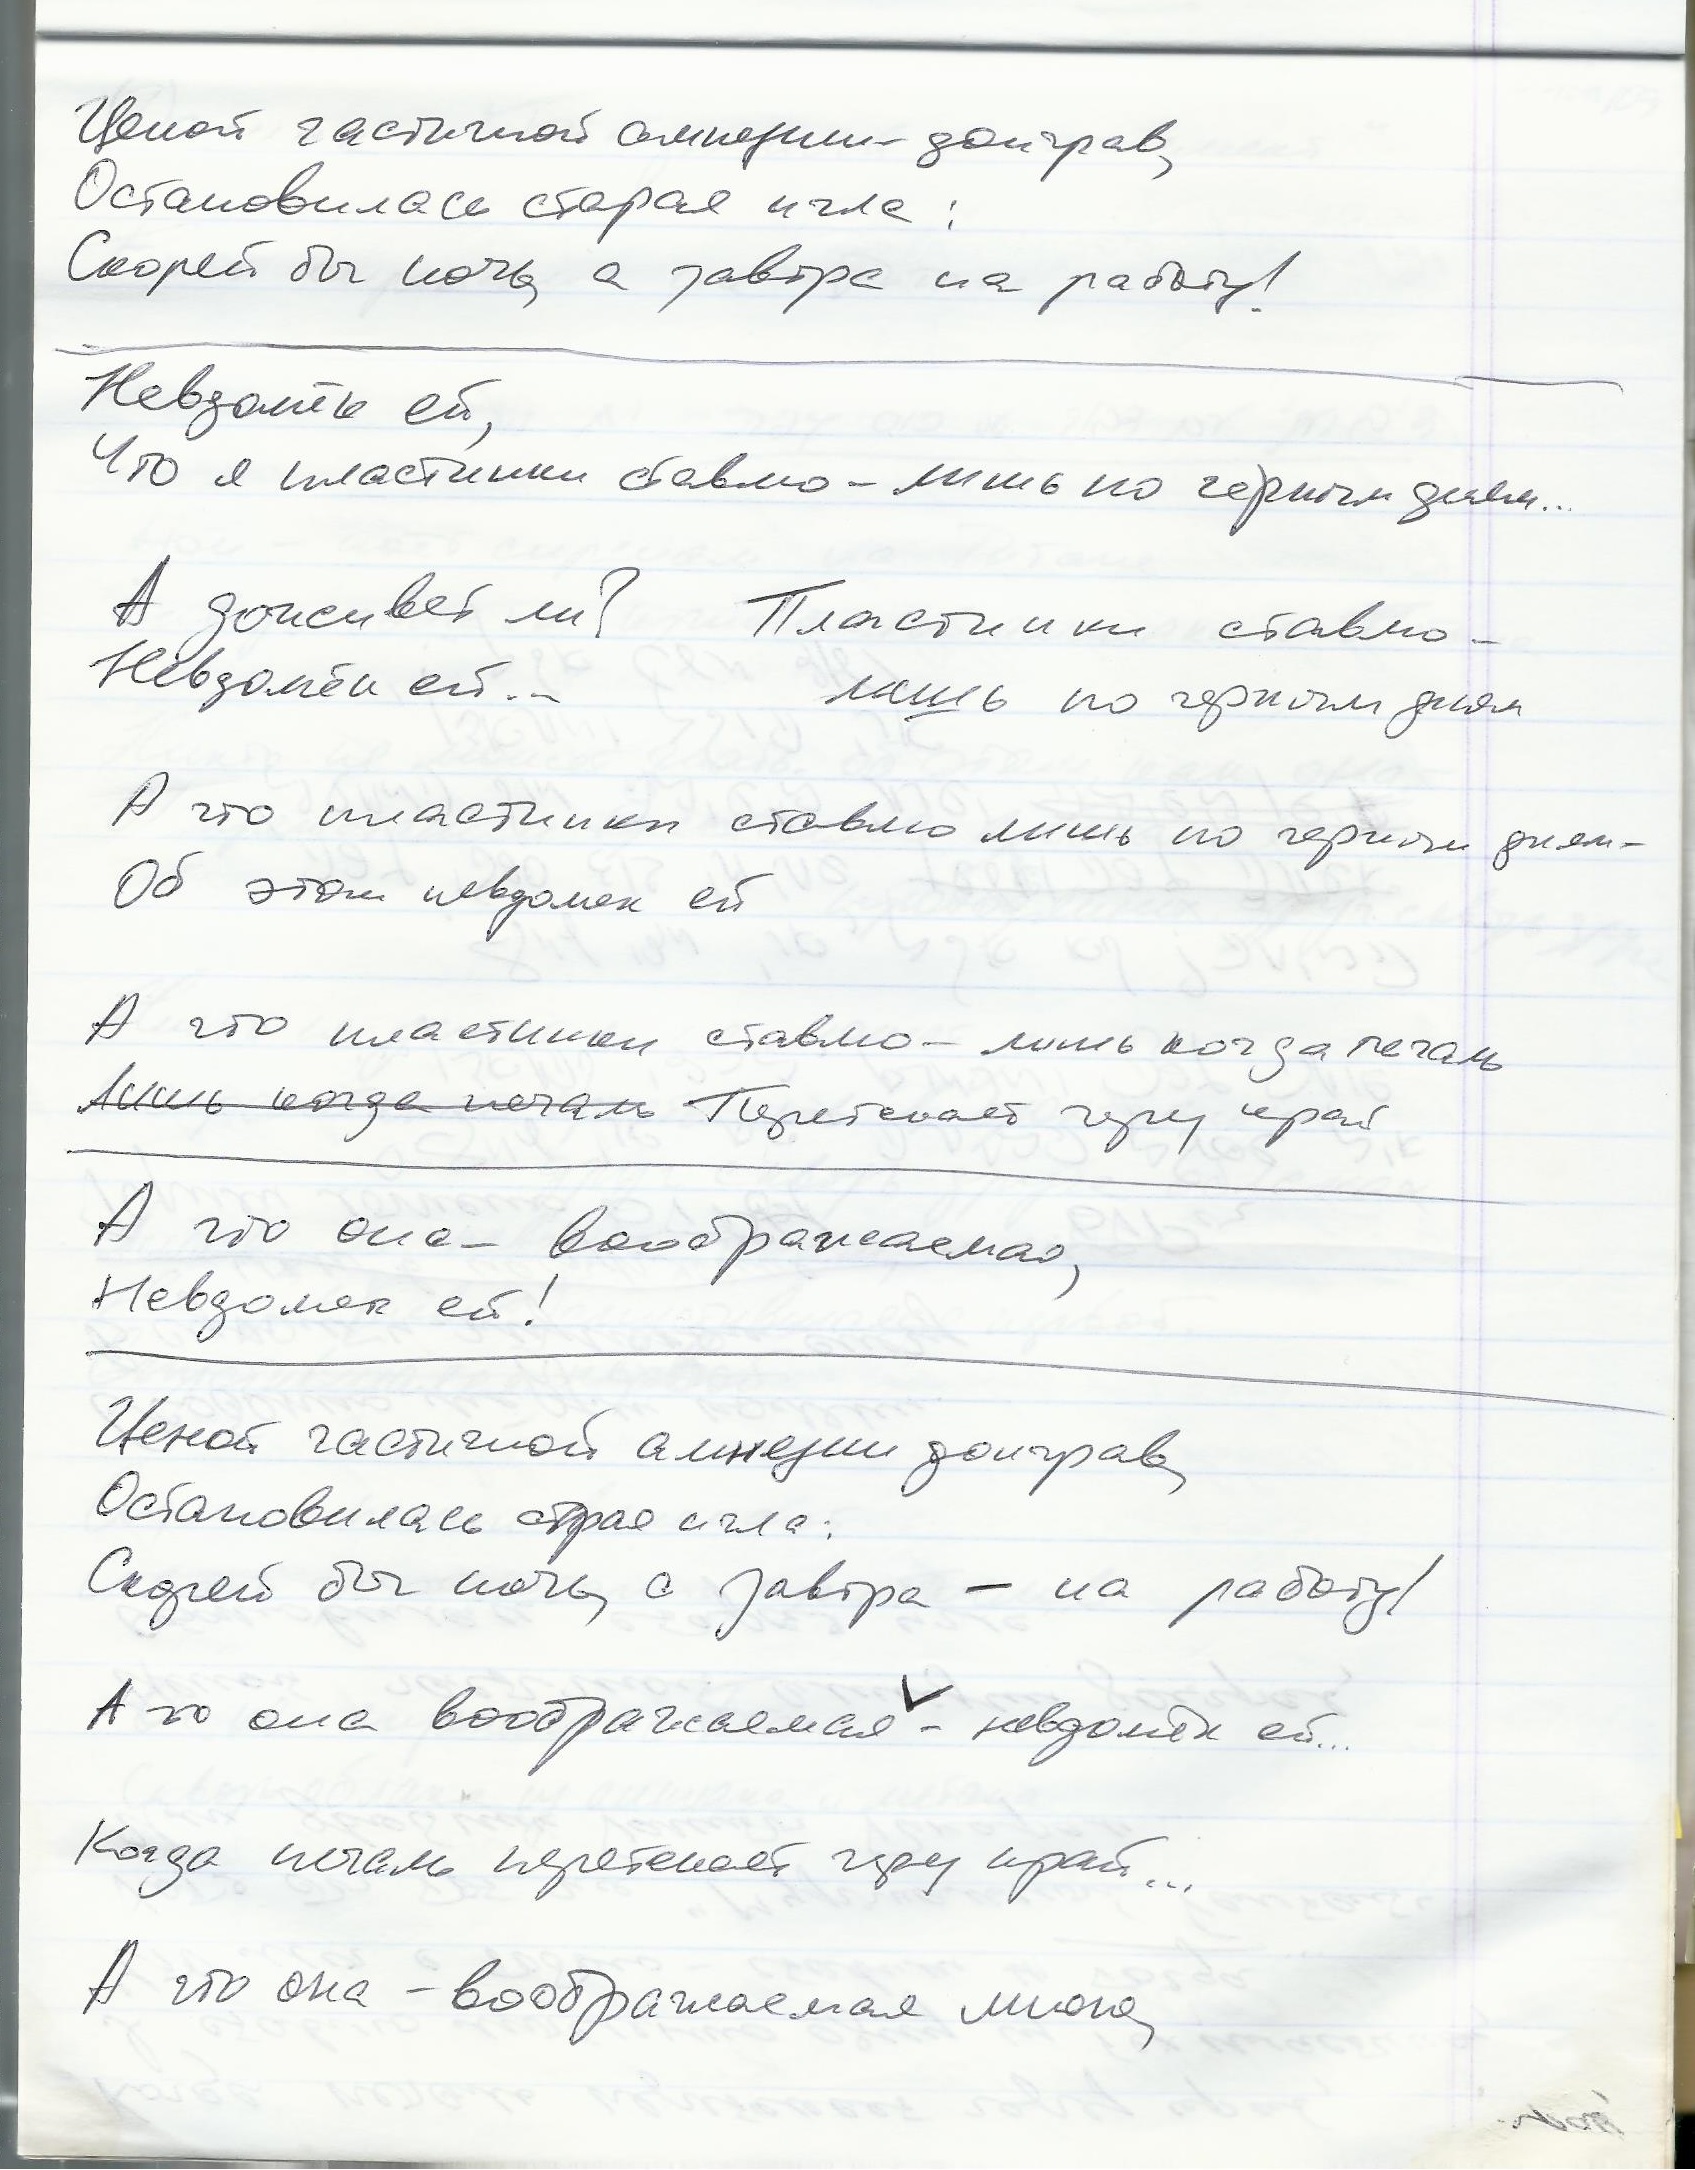 Ценой частичной амнезии - доиграв,
Остановилась старая игла:
Скорей бы ночь, а завтра на работу!
Невдомёк ей,
Что я пластинки ставлю - лишь по черным дням...
А доживет ли? Пластинки ставлю -
Невдомёк ей... лишь по черным дням
А что пластинки ставлю лишь по черным дням -
Об этом невдомек ей
А что пластинки ставлю - лишь когда печаль
Лишь когда печаль Перетекает через край
А что она - воображаемая,
Невдомек ей!
Ценой частичной амнезии доиграв,
Остановилась старая игла:
Скорей бы ночь, а завтра - на работу!
А что она воображаемая - невдомёк ей...
Когда печаль перетекает через край...
А что она - воображаемая мною,